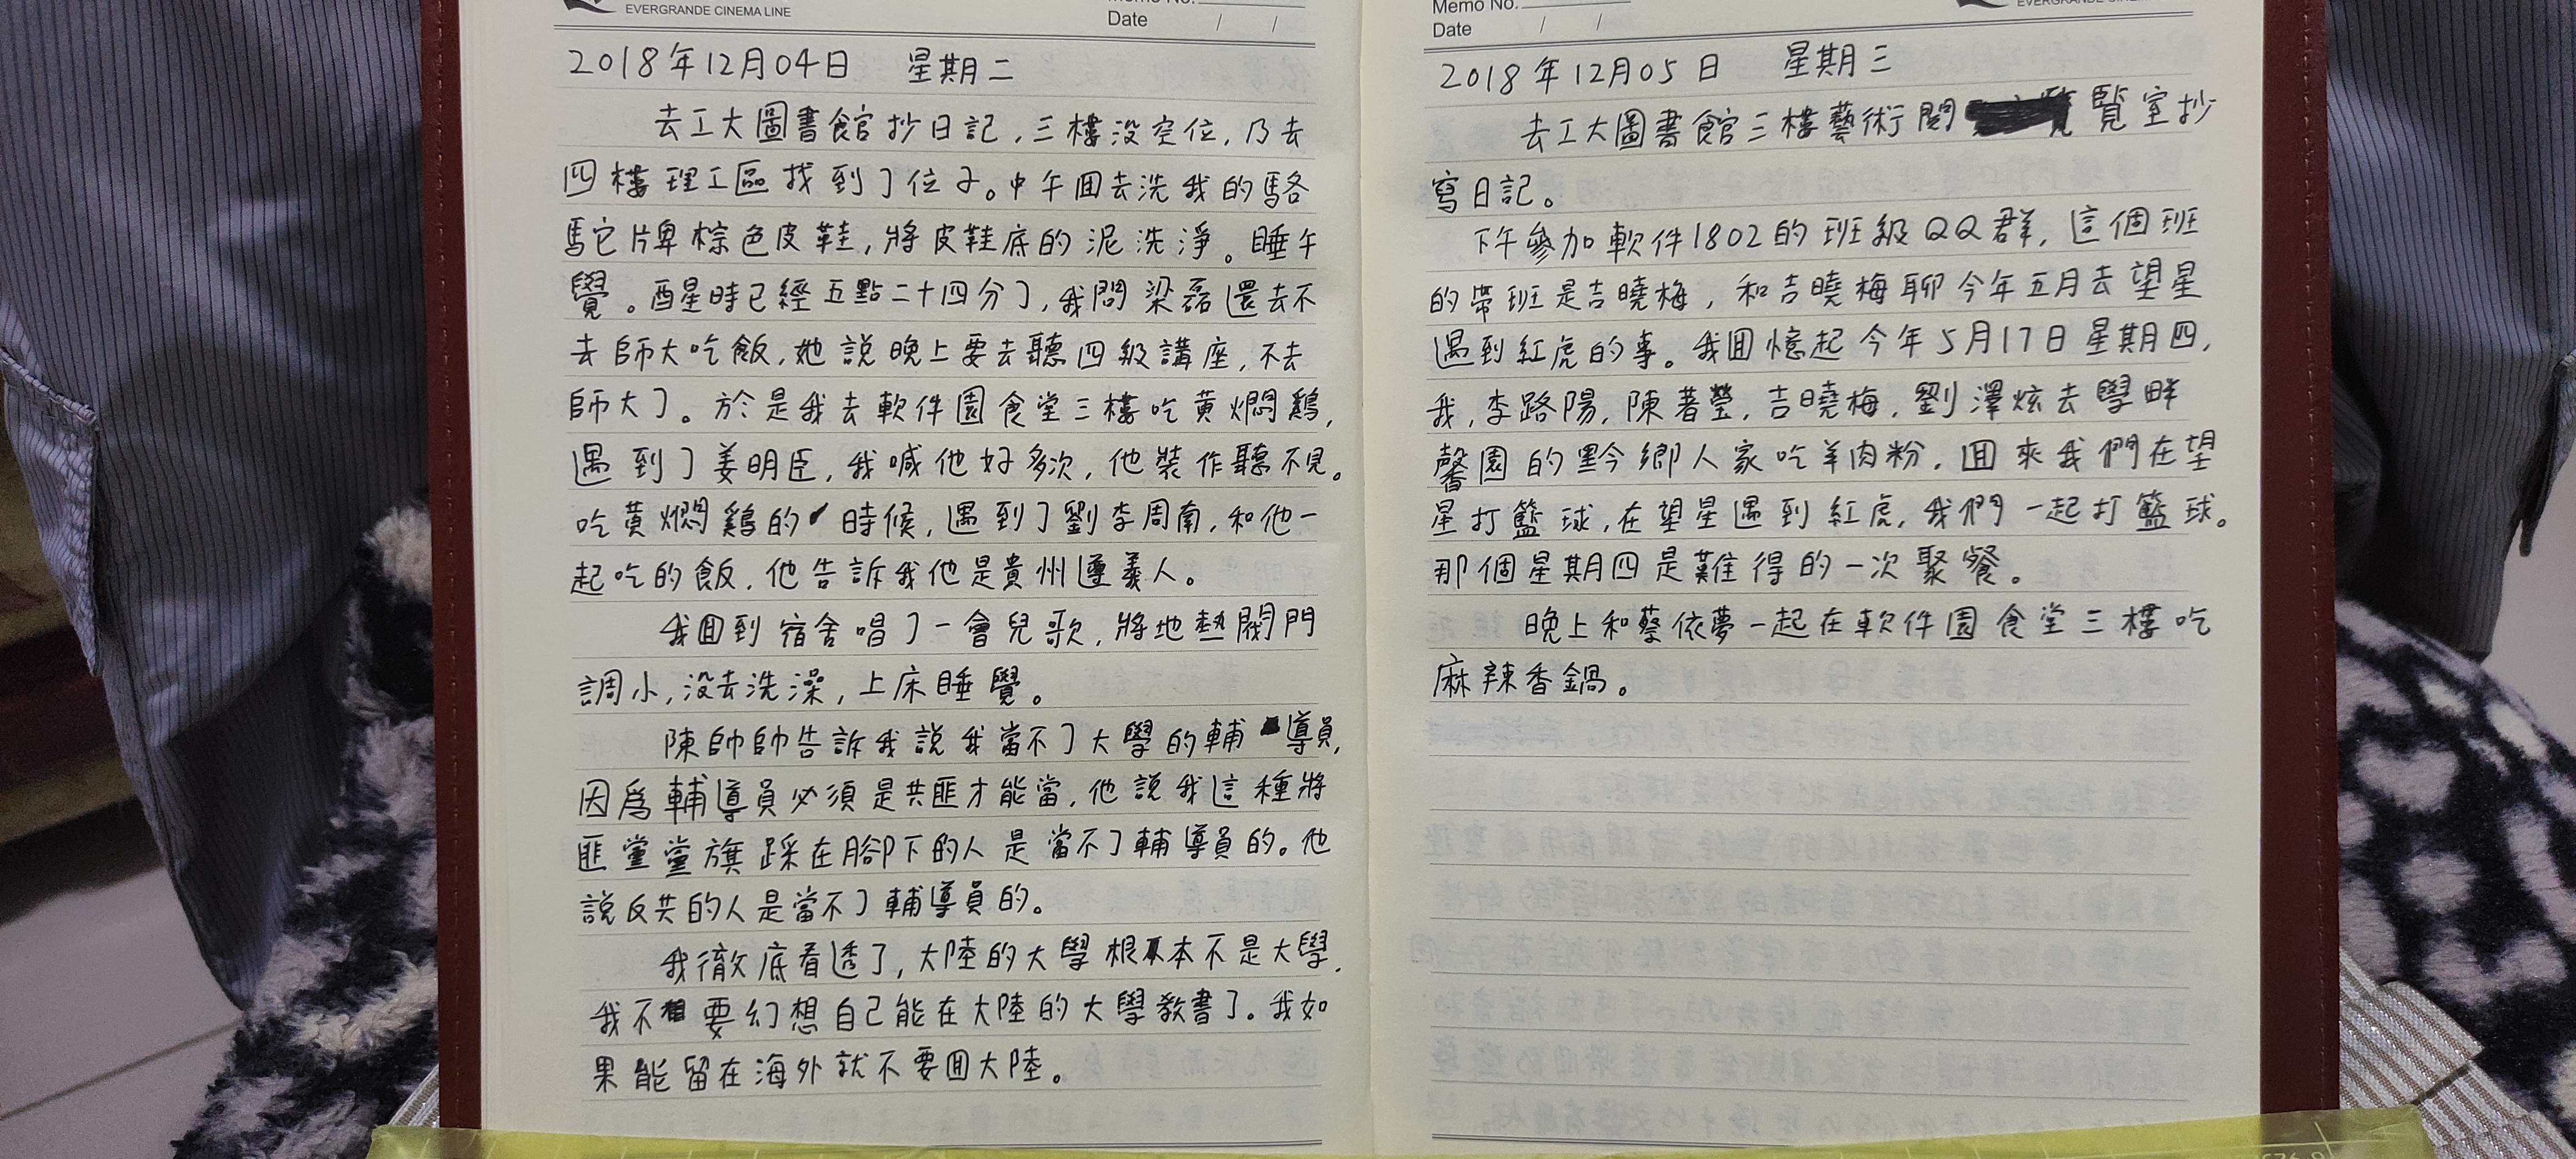 EVERGRANDE CINEMA LINE
Date / /
2018年12月04日 星期二
去工大圖書館抄日記,三樓没空位,乃去
四樓理工區找到了位子。中午囬去洗我的駱
駝牌棕色皮鞋,將皮鞋底的泥洗淨。睡午
覺。酉星時已經五點二十四分了,我問梁磊還去不
去師大吃飯,她說晚上要去聽四級講座,不去
師大了。於是我去軟件園食堂三樓吃黄燜鷄,
遇到了姜明臣,我喊他好多次,他裝作聽不見。
吃黄燜鷄的時候,遇到了劉李周南,和他一
起吃的飯,他告訴我他是貴州遵義人。
我囬到宿舍唱了一會兒歌,將地熱閥門
調小,没去洗澡,上床睡覺。
陳帥帥告訴我說我當不了大學的輔導員,
因爲輔導員必須是共匪才能當,他說我這種將
匪黨黨旗踩在腳下的人是當不了輔導員的。他
說反共的人是當不了輔導員的。
我徹底看透了,大陸的大學根本不是大學,
我不要幻想自己能在大陸的大學教書了。我如
果能留在海外就不要囬大陸。
Memo No.
Date / /
2018年12月05日 星期三
去工大圖書館三樓藝術閲覽室抄
寫日記。
下午參加軟件1802的班級QQ群,這個班
的帶班是吉曉梅,和吉曉梅聊今年五月去望星
遇到紅虎的事。我囬憶起今年5月17日星期四,
我,李路陽,陳著瑩,吉曉梅,劉澤炫去學畔
馨園的黔鄉人家吃羊肉粉,囬來我們在望
星打籃球,在望星遇到紅虎,我們一起打籃球。
那個星期四是難得的一次聚餐。
晚上和蔡依夢一起在軟件園食堂三樓吃
麻辣香鍋。